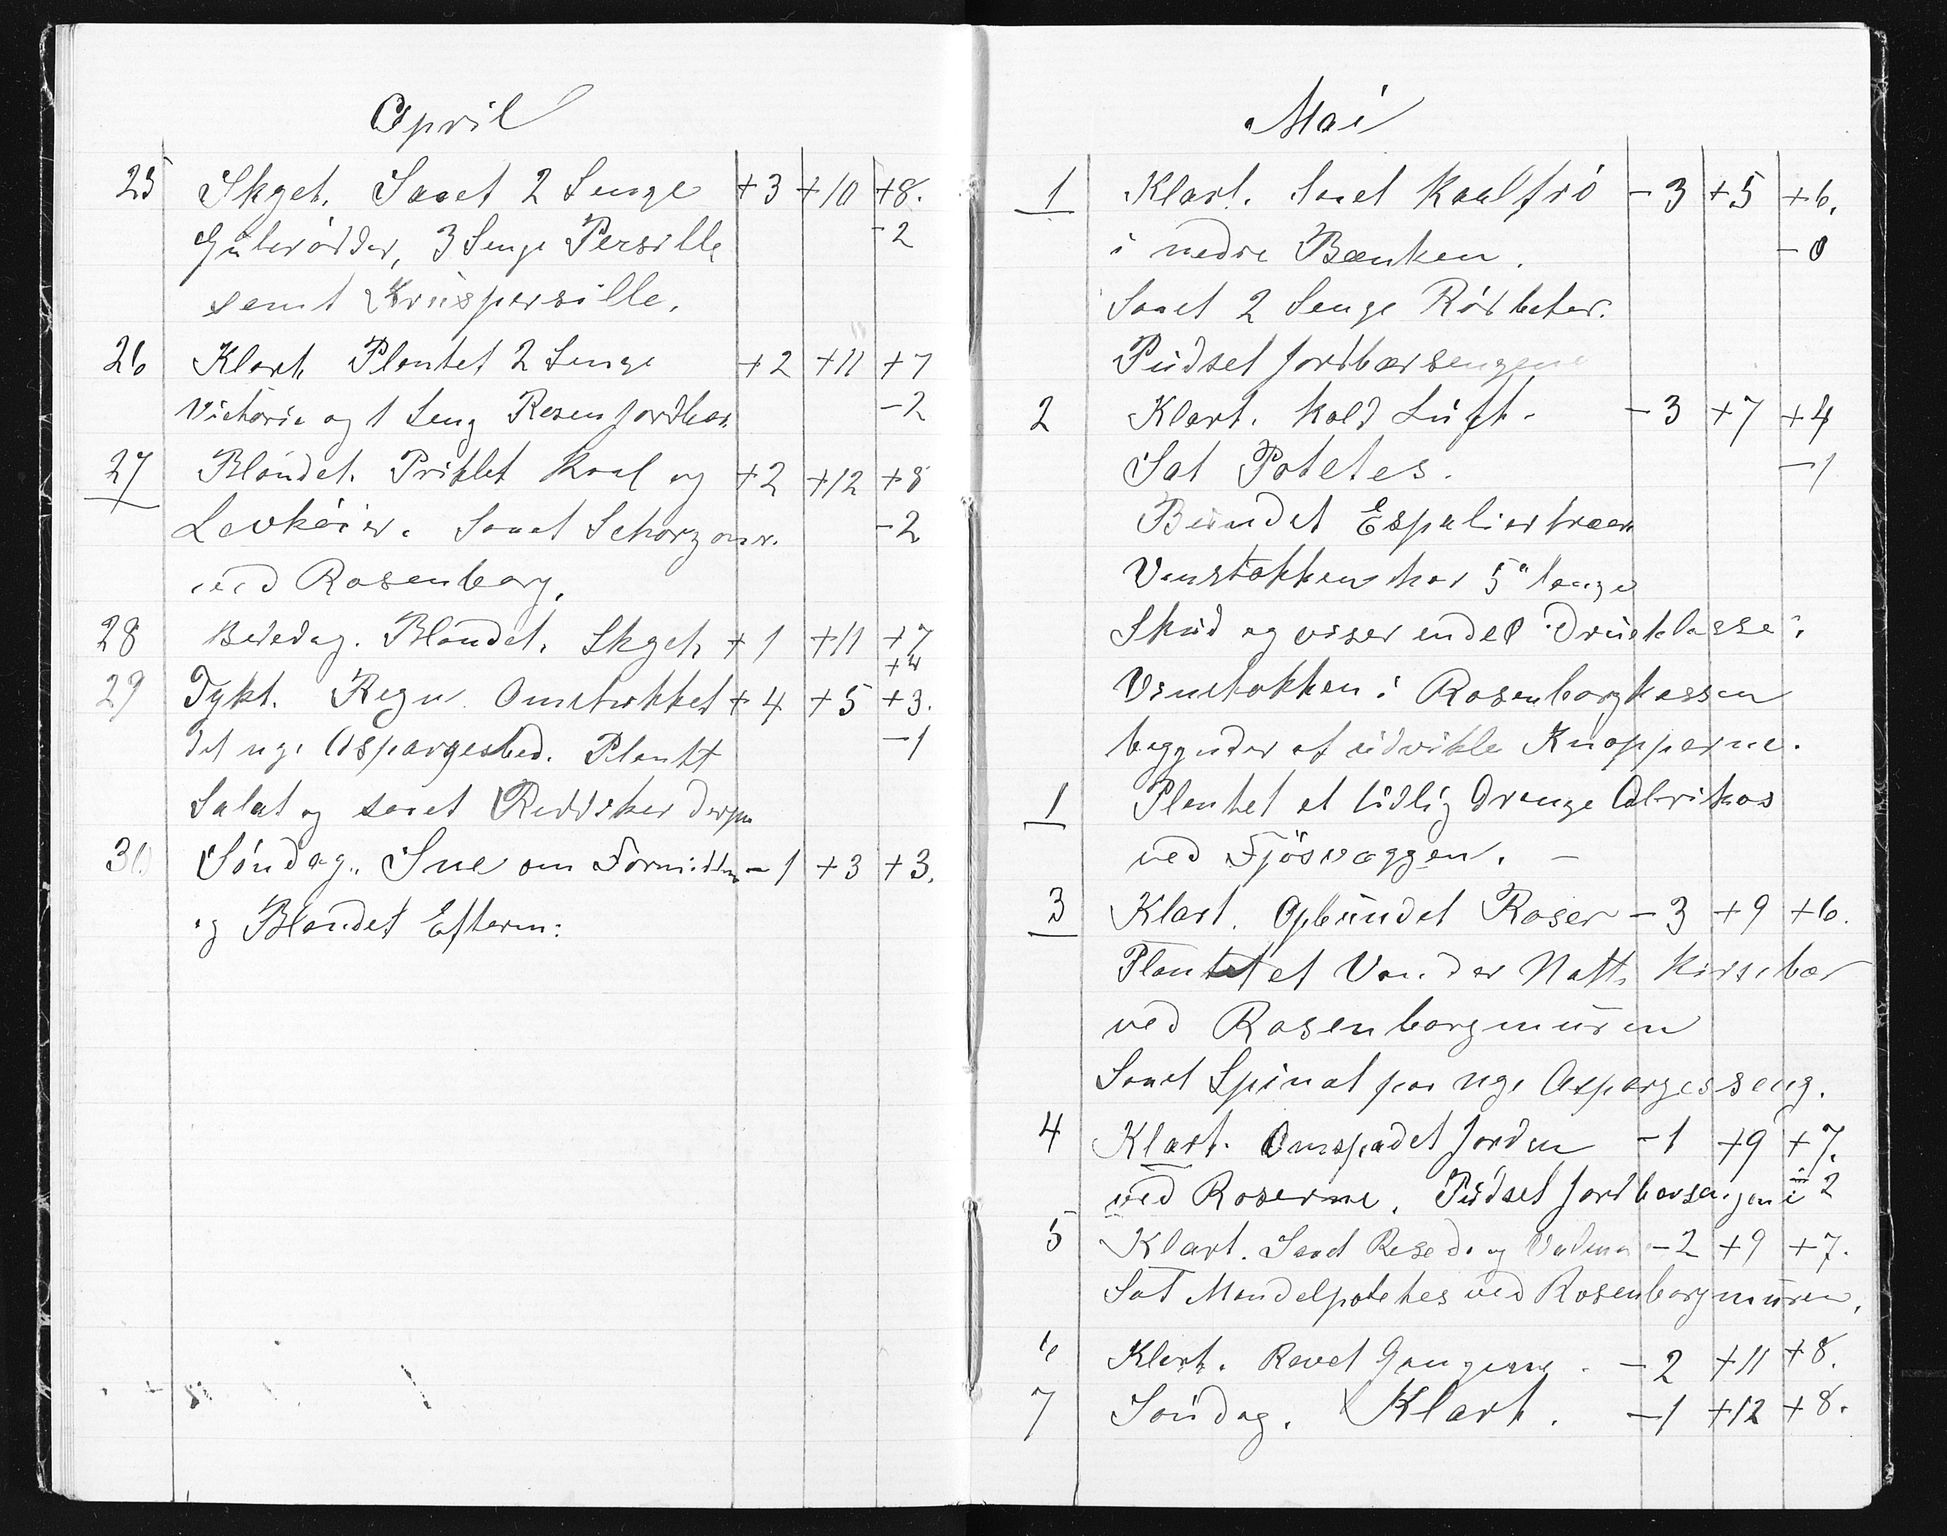 April
25 Skyet. Saaet 2 Senge +3 +10 +8.
Gulerødder, 3 Senge Persille -2
samt Kruspersille.
26 Klart. Plantet 2 Senge +2 +11 +7
Victoria og 1 Seng Resen Jordbær -2
27 Blandet. Priklet Kaal og +2 +12 +8
Levkøier. Saaet Schorzoner. -2
ved Rosenborg.
28 Bededag. Blandet. Skyet. +1 +11 +7
+4
29 Tykt. Regn. Omstukket +4 +5 +3.
det nye Aspargesbed. Plantt -1
Salat og saaet Reddiker derpaa
30 Søndag. Sne om Formidden -1 +3 +3.
og Blandet Efterm:
Mai
1 Klart. Saaet Kaalfrö -3 +5 +6.
i nedre Bænken. -0
Saaet 2 Senge Rödbeter.
Pudset Jordbærsengene
2 Klart. Kold Luft. -3 +7 +4
Sat Potetes. -1
Bundet Espaliertræer
Vinstokken har 5" lange
Skud og viser endel Drueklasse.
Vinstokken i Rosenborgkassen
begynder at udvikle Knopperne.
1 Plantet et tidlig Orange Abrikos
ved Fjösvæggen. -
3 Klart. Opbundet Roser -3 +9 +6.
Plantet et Van der Natt. Kirsebær
ved Rosenborgmuren
Saaet Spinat paa nye Aspargesseng.
4 Klart. Omspadet Jorden -1 +9 +7.
ved Roserne. Pudset Jordbærsengene 2
5 Klart. Saaet Reseda og Valmue -2 +9 +7.
Sat Mandelpotetes ved Rosenborgmuren.
6 Klart. Ravet Gangerne. -2 +11 +8.
7 Søndag. Klart. -1 +12 +8.